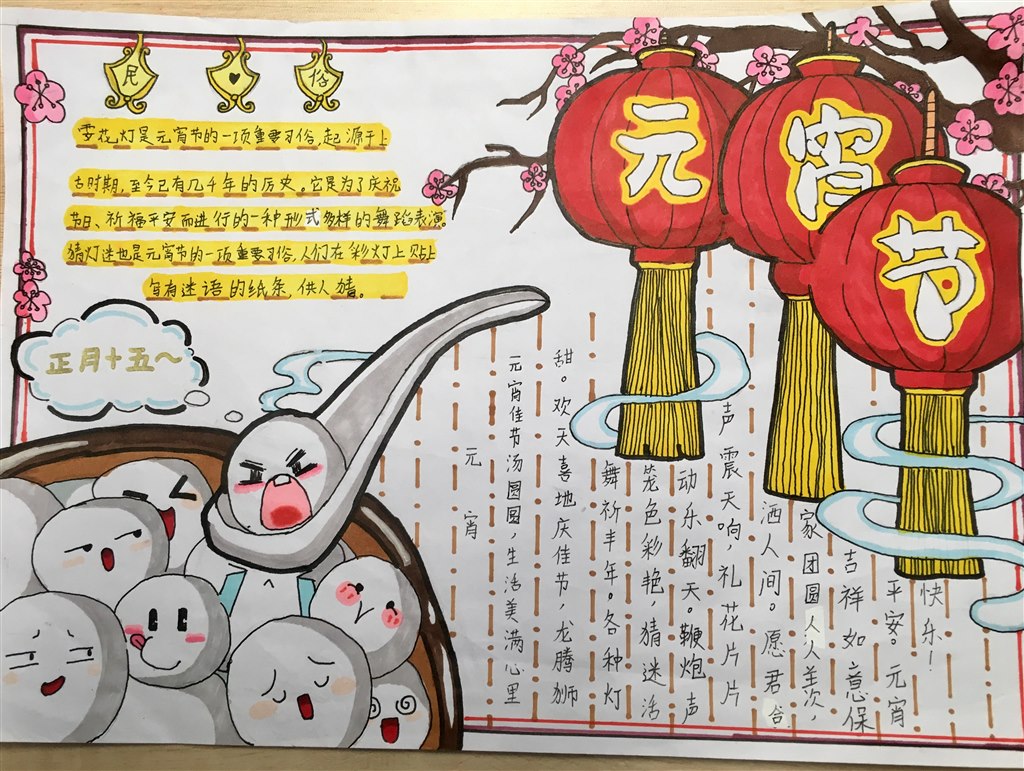 民 俗
元
宵
节
耍花灯是元宵节的一项重要习俗,起源于上
古时期,至今已有几千年的历史。它是为了庆祝
节日、祈福平安而进行的一种形式多样的舞蹈表演。
猜灯迷也是元宵节的一项重要习俗,人们在彩灯上贴上
写有迷语的纸条,供人猜。
正月十五~
元宵
元宵佳节汤圆圆,生活美满心里
甜。欢天喜地庆佳节,龙腾狮
舞祈丰年。各种灯
笼色彩艳,猜迷活
动乐翻天。鞭炮声
声震天响,礼花片片
洒人间。愿君合
家团圆人人羡,
吉祥如意保
平安。元宵
快乐!